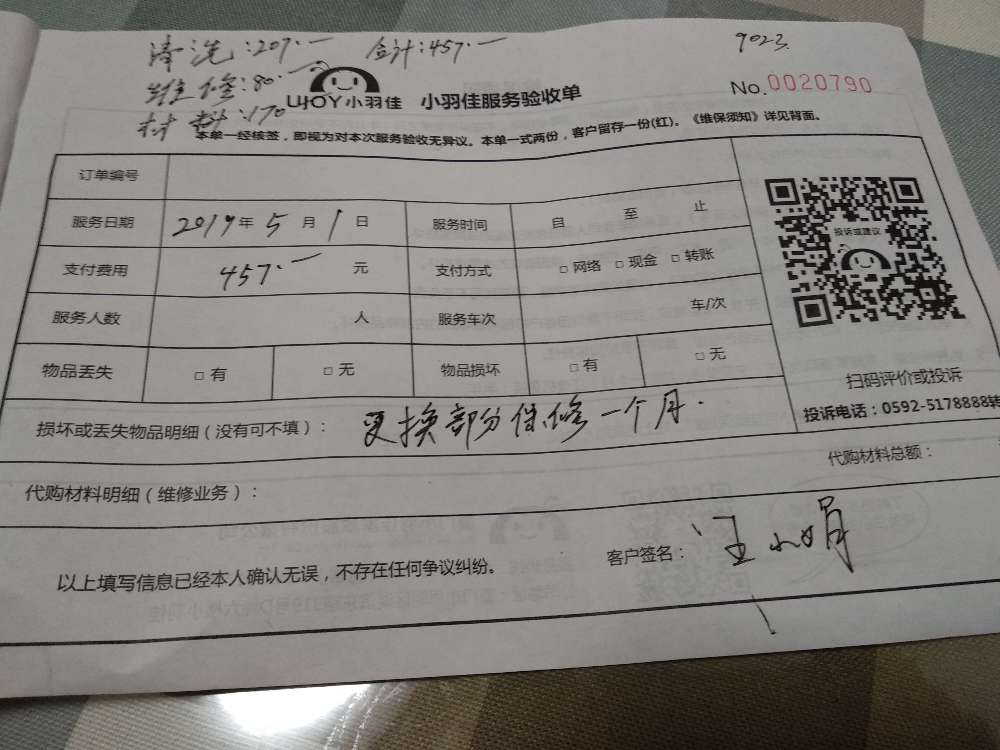 清洗:207.— 合计:457.— 9023.
维修:80.—
材料:170
UJOY小羽佳 小羽佳服务验收单 No.0020790
本单一经核签，即视为对本次服务验收无异议。本单一式两份，客户留存一份(红)。《维保须知》详见背面。
订单编号
服务日期 2019年5月1日 服务时间 自 至 止
投诉或建议
支付费用 457.— 元 支付方式 □ 网络 □ 现金 □ 转账
服务人数 人 服务车次 车/次
物品丢失 □ 有 □ 无 物品损坏 □ 有 □ 无
扫码评价或投诉
投诉电话：0592-5178888转
损坏或丢失物品明细（没有可不填）： 更换部分保修一个月.
代购材料明细（维修业务）： 代购材料总额：
以上填写信息已经本人确认无误，不存在任何争议纠纷。 客户签名：汪小娟